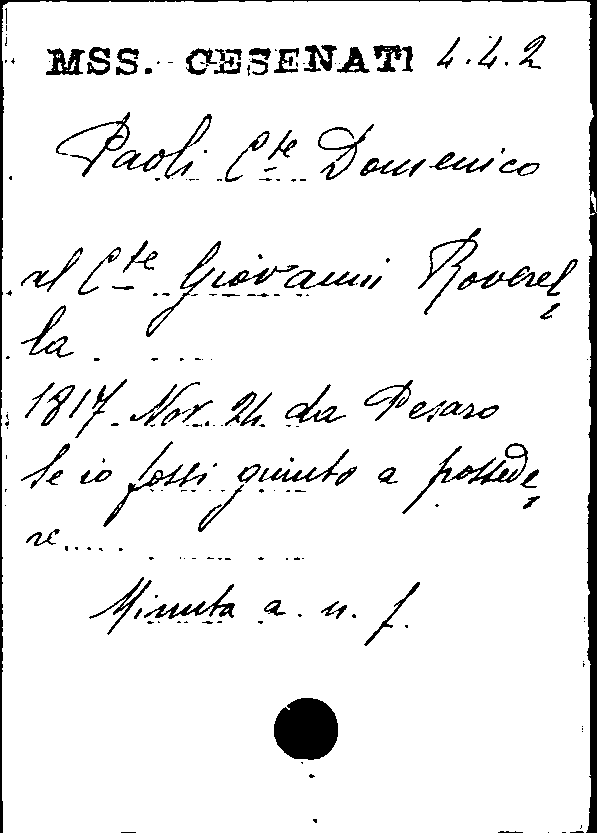 MSS. CESENATI 4.4.2
Paoli Cte Domenico
al Cte Giovanni Roverel=
la
1817 Nov. 24 da Pesaro
Se io fossi giunto a possede=
re....
Minuta a. n. f.